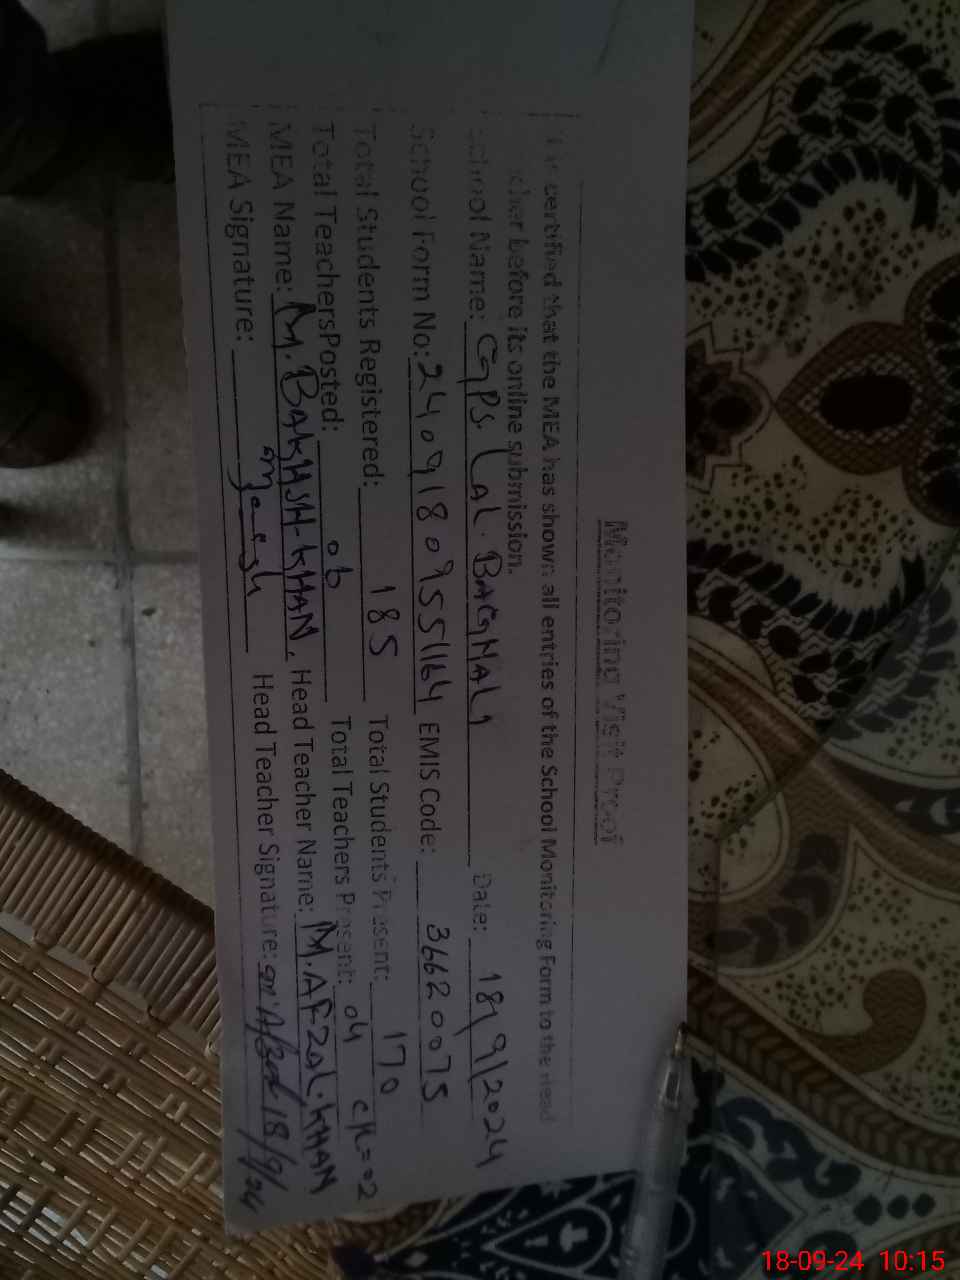 Monitoring Visit Proof
It is certified that the MEA has shown all entries of the School Monitoring Form to the Head
Teacher before its online submission.
School Name: GPS LAL. BAGHALI Date: 18/9/2024
School Form No: 24091809551164 EMIS Code: 36620075
Total Students Registered: 185 Total Students Present: 170
Total TeachersPosted: 06 Total Teachers Present: 04 CH=02
MEA Name: M. BAKHSH-KHAN. Head Teacher Name: M.AFZAL.KHAN
MEA Signature: Head Teacher Signature: M.Afzal 18/9/24
18-09-24 10:15